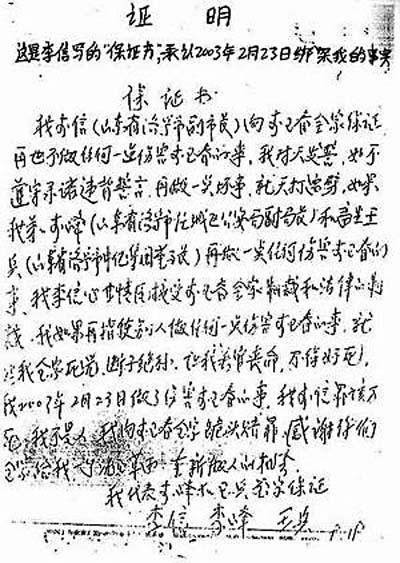 证 明
这是李信写的"保证书",承认2003年2月23日绑架我的事实
保证书
我李信(山东省济宁市副市长)向李玉春全家保证
再也不做任何一点伤害李玉春的事,我对天发誓,如不
遵守承诺违背誓言,再做一点坏事,就天打雷劈,如果
我弟李峰(山东省济宁市任城区公安局副局长)和王
兵(山东省济宁市)再做一点任何伤害李玉春的
事,我李信心甘情愿接受李玉春全家制裁和法律的制
裁,我如果再指使别人做任何一点伤害李玉春的事,就
我全家死光,断子绝孙,让我丢官丧命,不得好死,
我2003年2月23日做了伤害李玉春的事,我李信罪该万
死,我不是人,我向李玉春全家磕头赔罪,感谢你们
全家给我一次洗心革面 重新做人的机会,
我代表李峰和王兵全家保证
李信 李峰 王兵